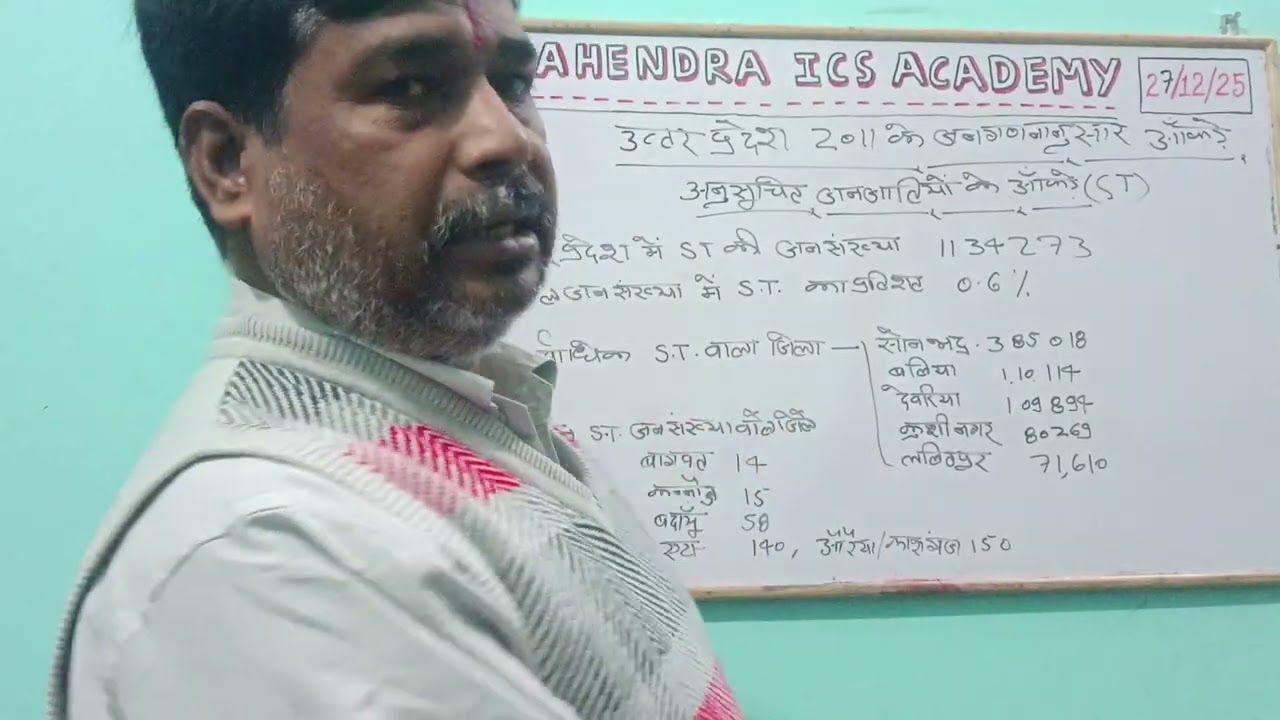 AHENDRA ICS ACADEMY 27/12/25
उत्तर प्रदेश 2011 के जनगणनानुसार आँकड़े
अनुसूचित जनजातियों के आँकड़े (ST)
प्रदेश में ST की जनसंख्या 1134273
जनसंख्या में S.T. का प्रतिशत 0.6%
र्वाधिक S.T. वाला जिला — सोनभद्र. 385018
बलिया 1,10,114
देवरिया 109894
कुशीनगर 80269
ललितपुर 71,610
S.T. जनसंख्या वाले जिले
बागपत 14
कन्नौज 15
बदायूँ 58
एटा 140, औरैया/काशगंज 150